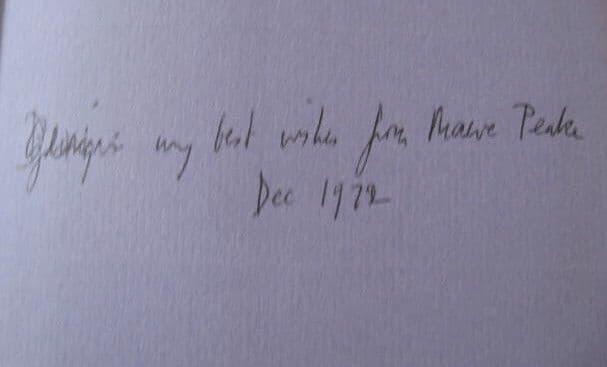 my best wishes from Maeve Peake
Dec 1972